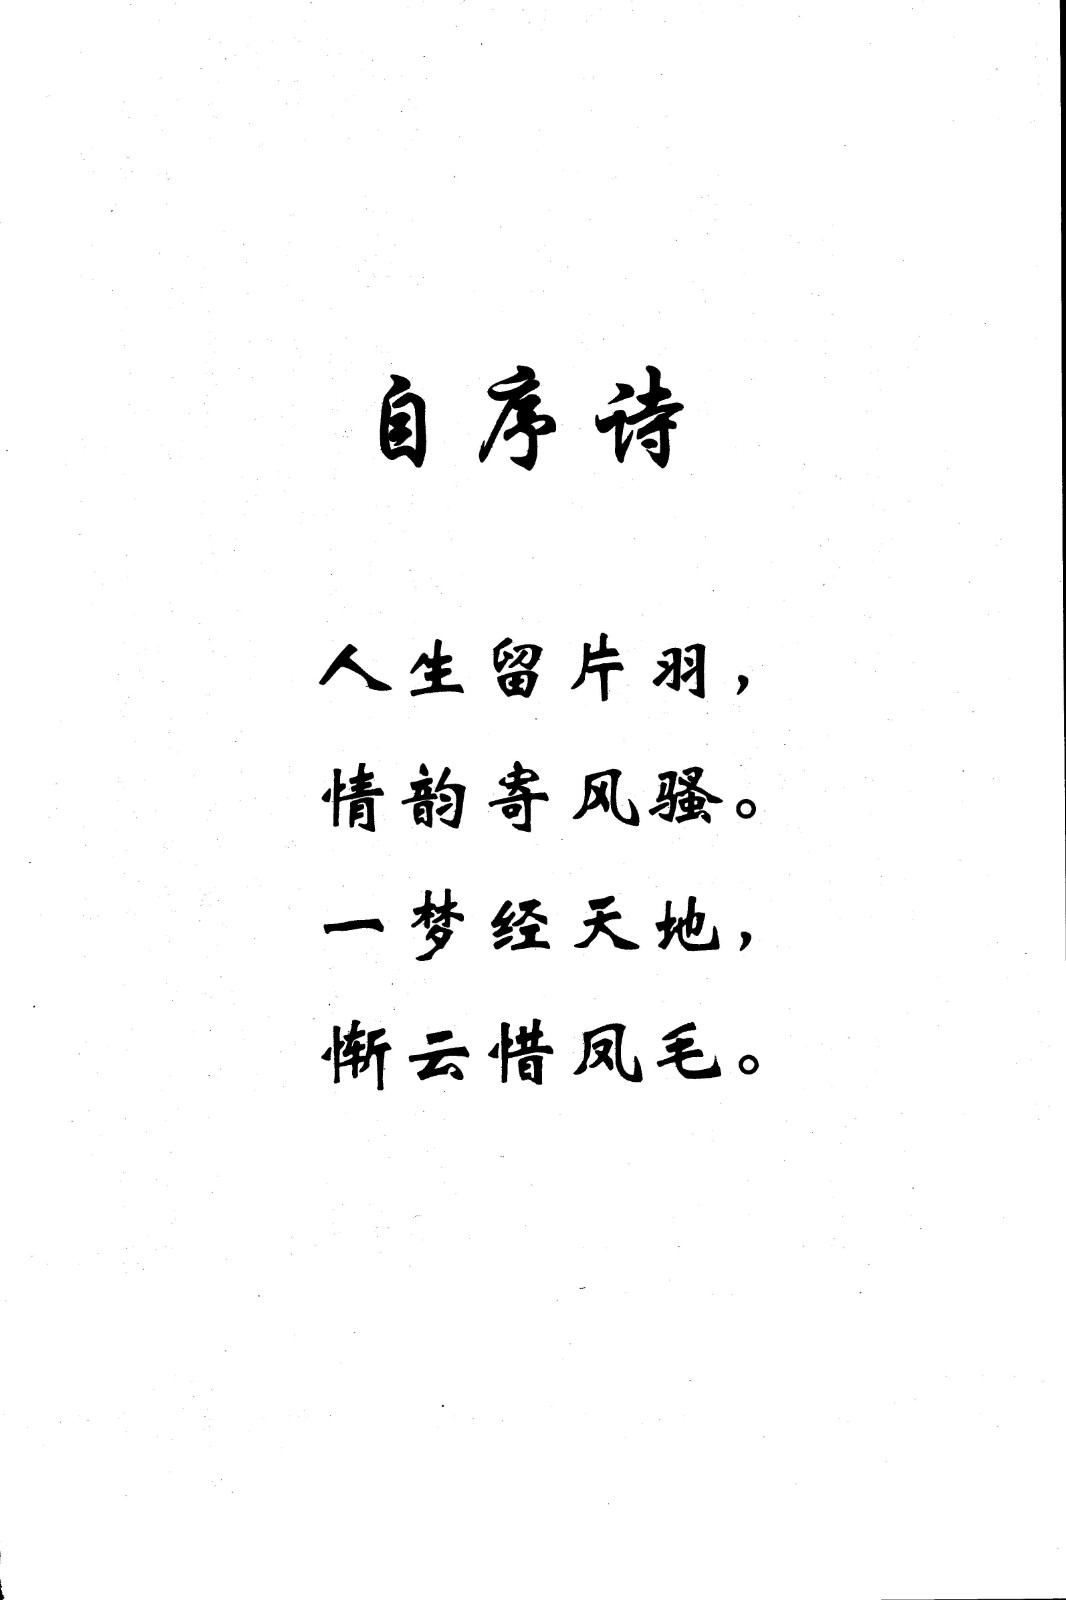 自序诗
人生留片羽，
情韵寄风骚。
一梦经天地，
惭云惜凤毛。